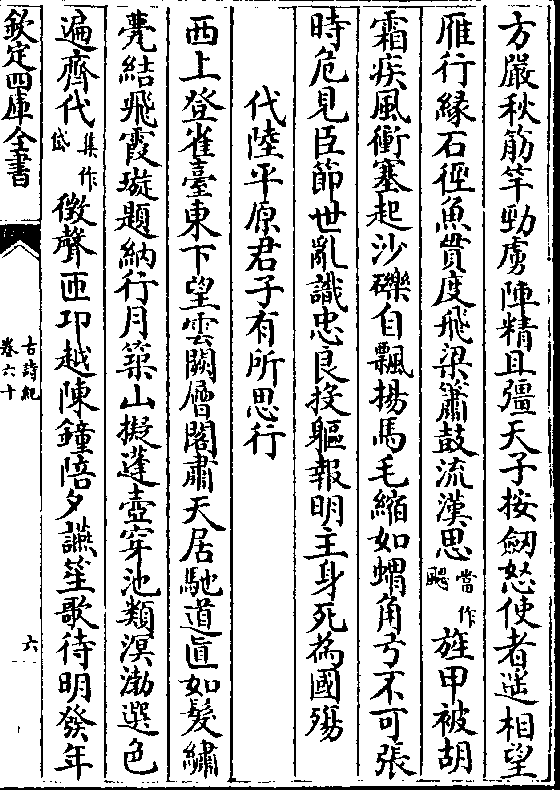 方嚴秋筋竿勁虜陣精且彊天子按劒怒使者遥相望
雁行緣石徑魚貫度飛梁簫鼓流漢思當作颸旌甲被胡
霜疾風衝塞起沙礫自飄揚馬毛縮如蝟角弓不可張
時危見臣節世亂識忠良投軀報明主身死為國殤
代陸平原君子有所思行
西上登雀臺東下望雲闕層閣肅天居馳道直如髮繡
甍結飛霞璇題納行月築山擬蓬壺穿池類溟渤選色
遍齊代集作岱徴聲匝卭越陳鐘陪夕讌笙歌待明發年
欽定四庫全書
古詩紀
卷六十
六